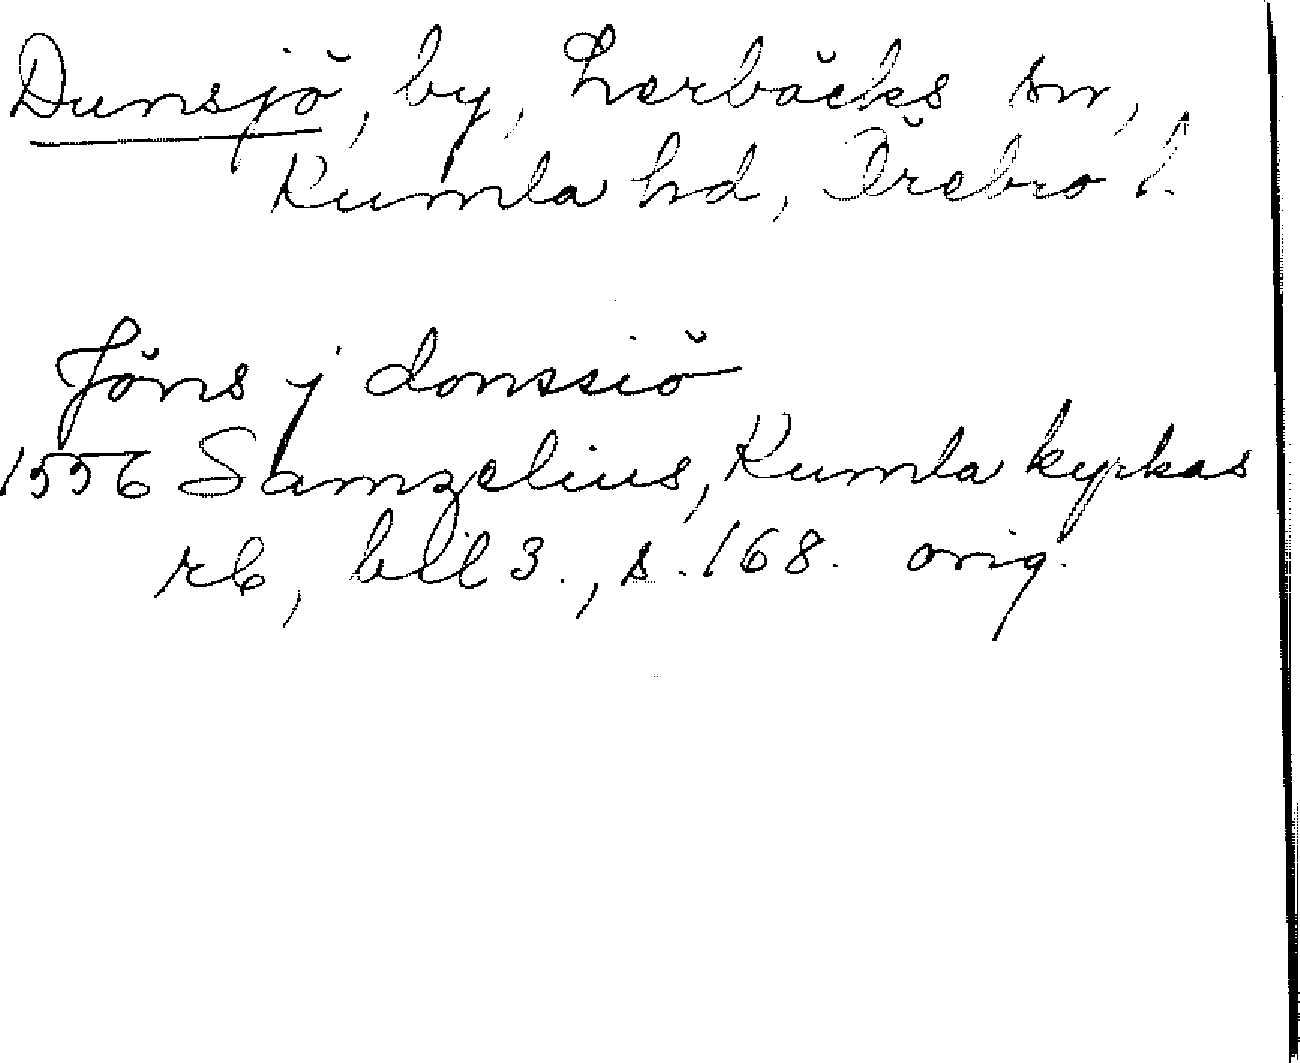 Dunsjö, by, Lerbäcks sn,
Kumla hd, Örebro l.
Jöns j donssiö
1556 Samzelius, Kumla kyrkas
rb, bil 3., s. 168. orig.